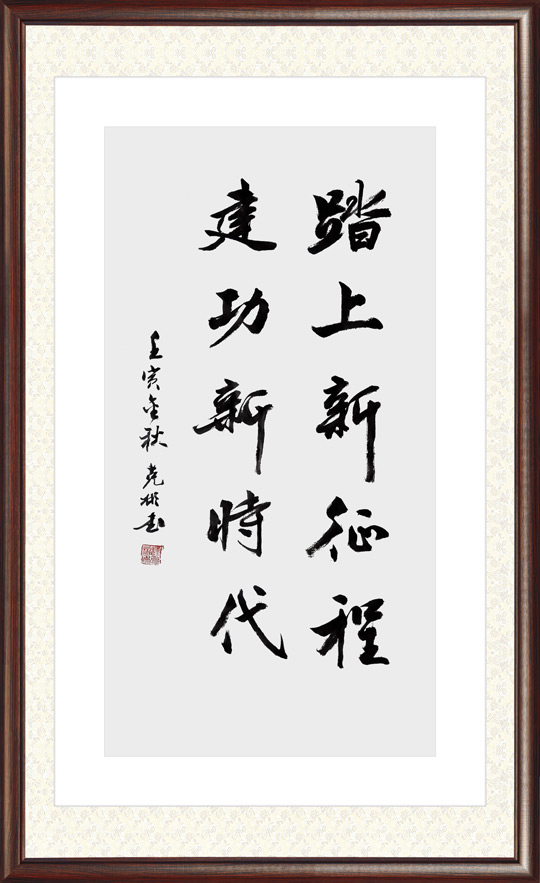 踏上新征程
建功新時代
壬寅金秋 克彬书